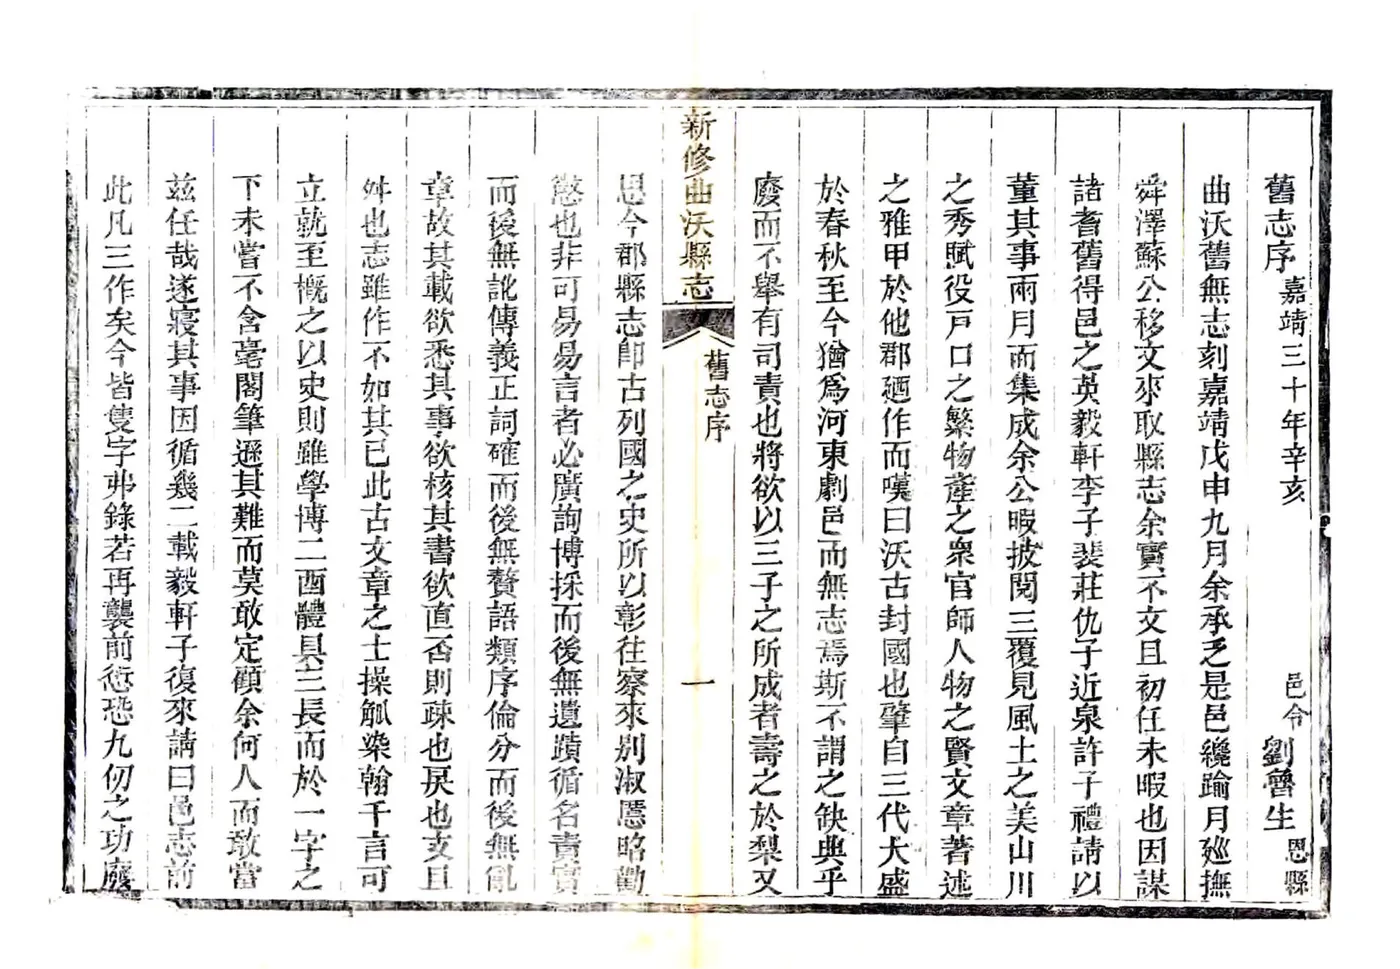 舊志序嘉靖三十年辛亥 邑令劉魯生恩縣
曲沃舊無志刻嘉靖戊申九月余承乏是邑纔踰月廵撫
舜澤蘇公移文來取縣志余實不文且初任未暇也因謀
諸耆舊得邑之英毅軒李子裴莊仇子近泉許子禮請以
董其事兩月而集成余公暇披閱三覆見風土之美山川
之秀賦役戸口之繁物產之衆官師人物之賢文章著述
之雅甲於他郡廼作而嘆曰沃古封國也肇自三代大盛
於春秋至今猶爲河東劇邑而無志焉斯不謂之缺典乎
廢而不舉有司責也將欲以三子之所成者壽之於梨又
新修曲沃縣志 舊志序 一
思今郡縣志卽古列國之史所以彰往察來别淑慝昭勸
懲也非可易易言者必廣詢博採而後無遺蹟循名責實
而後無訛傳義正詞確而後無贅語類序倫分而後無亂
章故其載欲悉其事欲核其書欲直否則疎也戾也支且
舛也志雖作不如其已此古文章之士操觚染翰千言可
立就至慨之以史則雖學博二酉體具三長而於一字之
下未嘗不含毫閣筆遜其難而莫敢定顧余何人而敢當
兹任哉遂寢其事因循幾二載毅軒子復來請曰邑志前
此凡三作矣今皆隻字弗錄若再襲前愆恐九仞之功廢